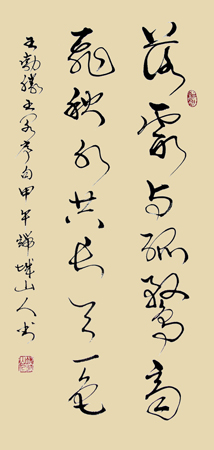 落霞与孤鹜齐
飞秋水共长天一色
王勃滕王阁序句甲午 城山人书